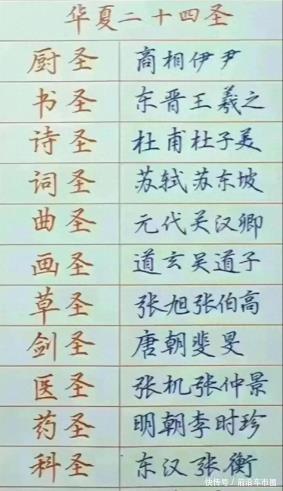 华夏二十四圣
厨圣 商相伊尹
书圣 东晋王羲之
诗圣 杜甫杜子美
词圣 苏轼苏东坡
曲圣 元代关汉卿
画圣 道玄吴道子
草圣 张旭张伯高
剑圣 唐朝斐旻
医圣 张机张仲景
药圣 明朝李时珍
科圣 东汉张衡
快传号/前沿车市圈